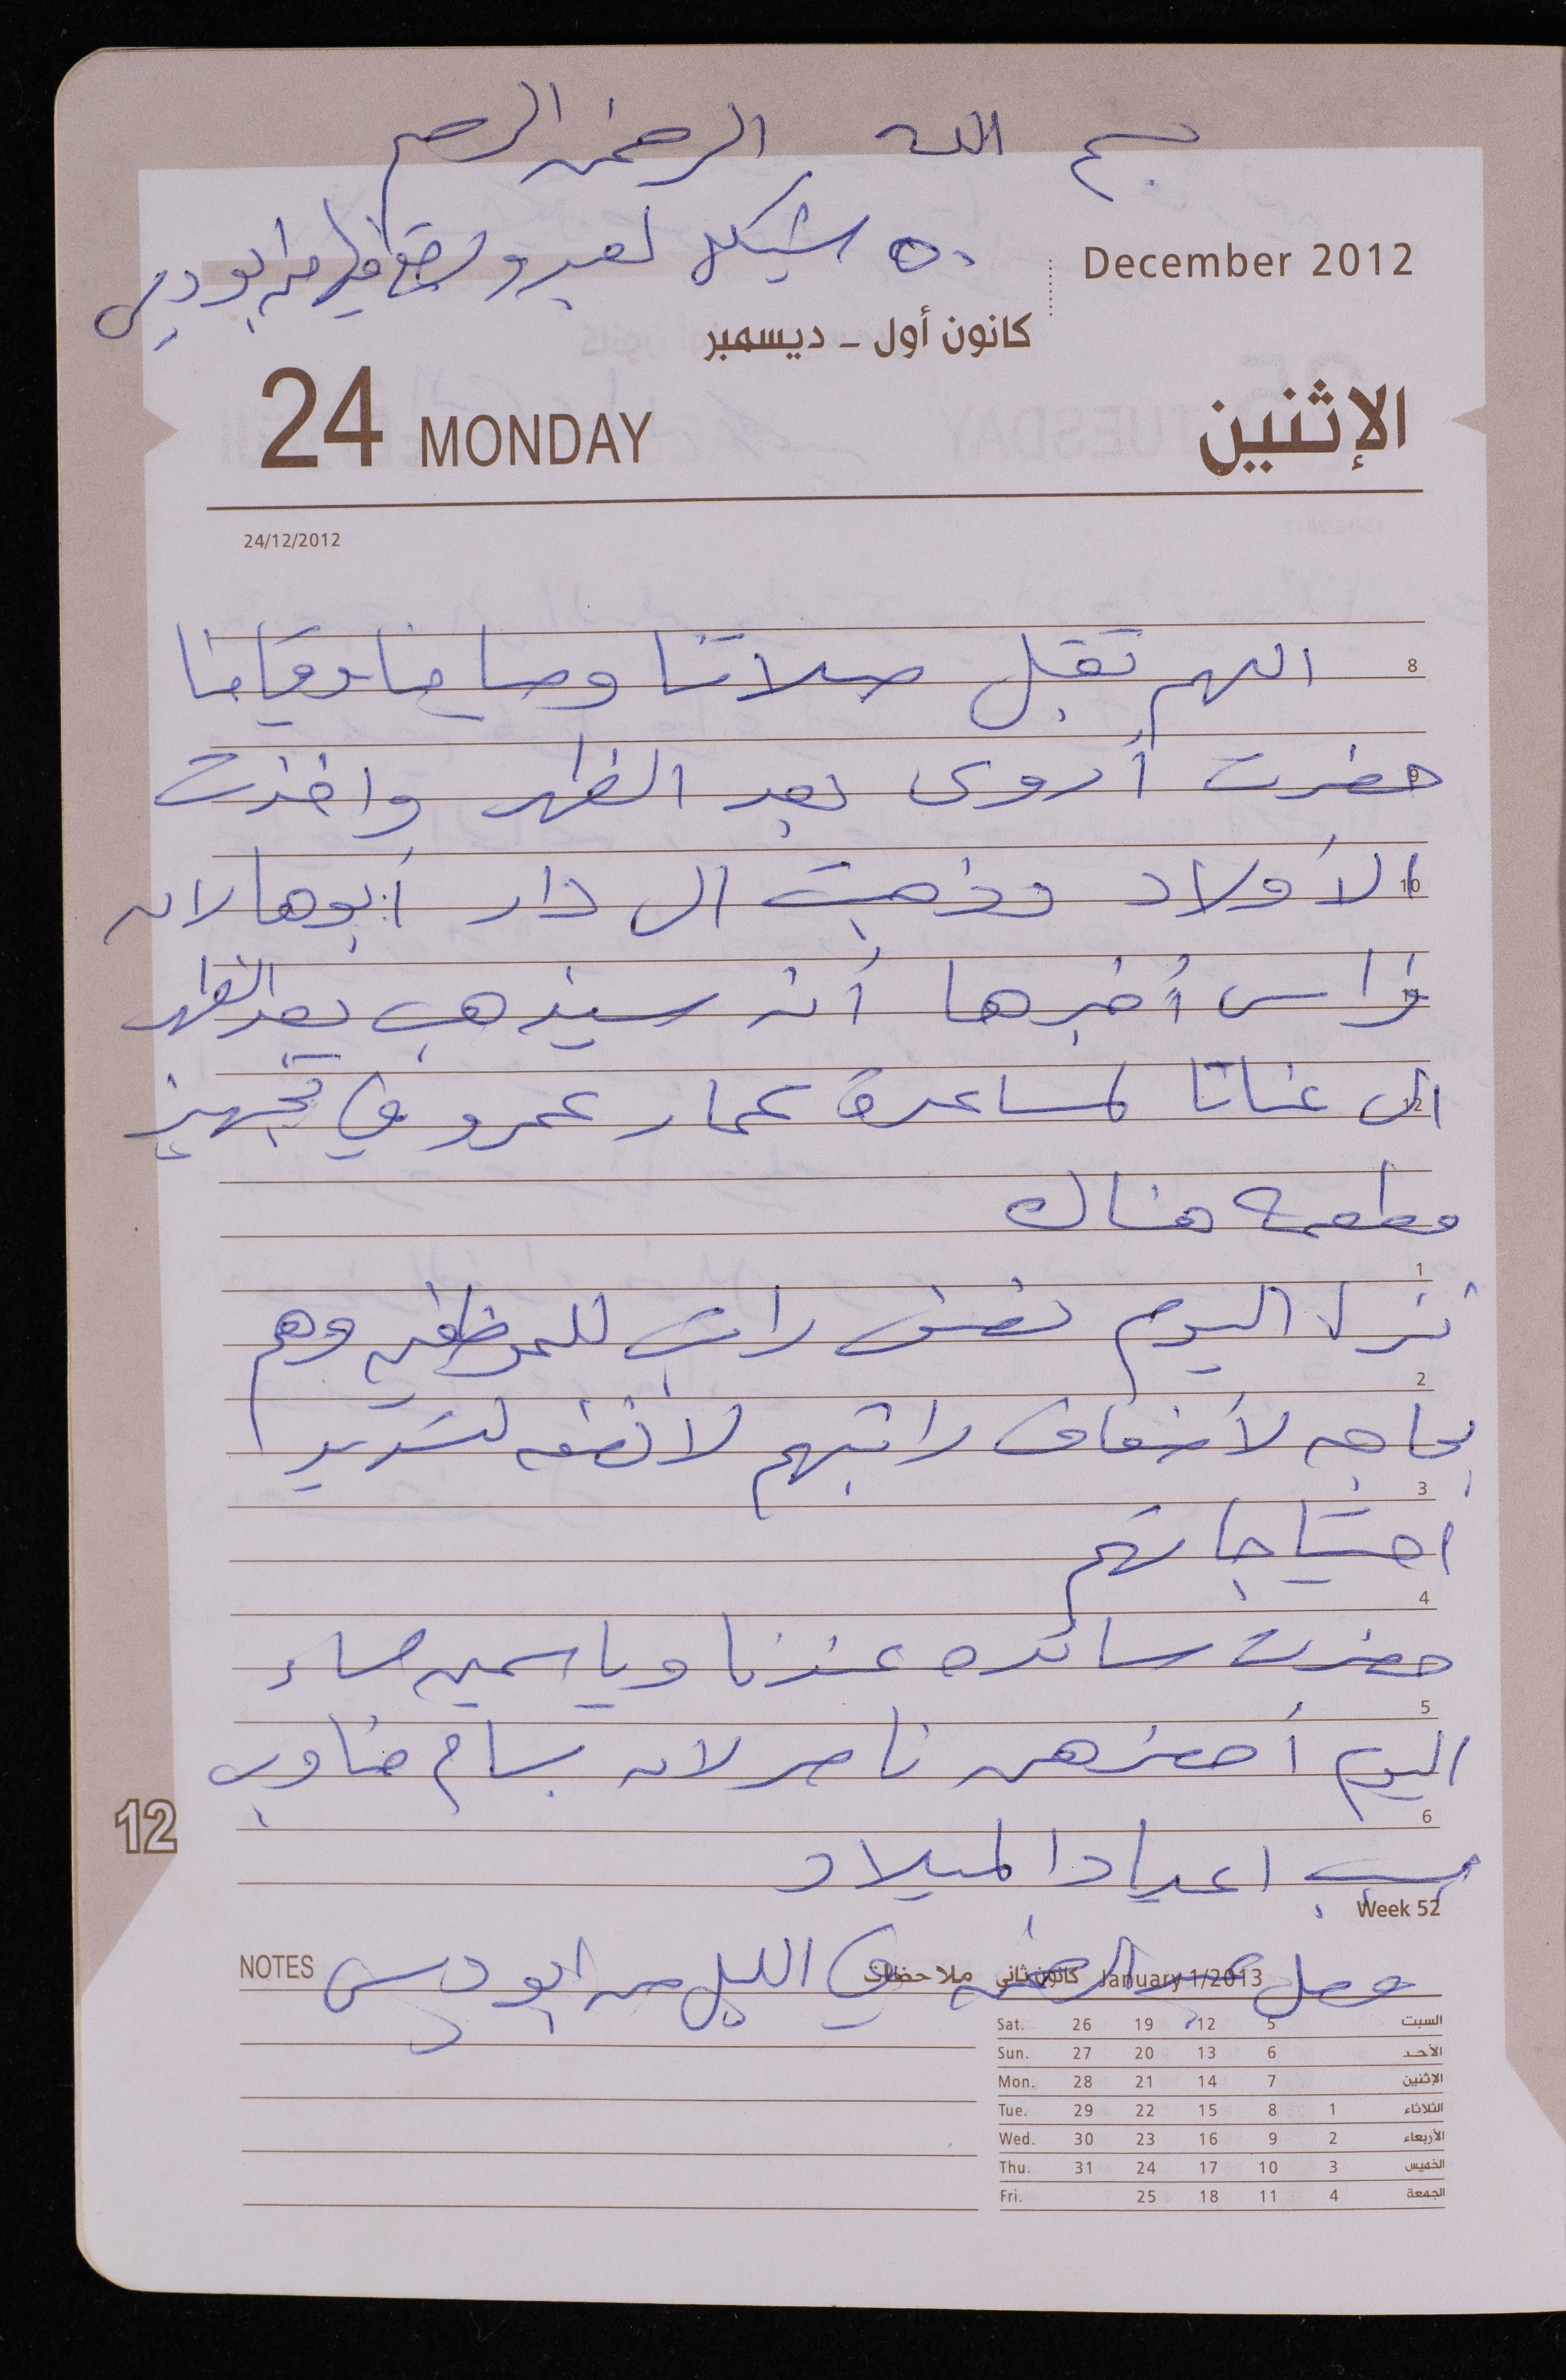 بسم الله الرحمن الرحيم
٥٠ شيكل لعبد و من ابو ديس
December 2012
كانون أول - ديسمبر
24 MONDAY الإثنين
24/12/2012
8 اللهم تقبل صلاتنا وصيامنا وقيامنا
9 حضرت أروى بعد الظهر واخذت
10 الأولاد وذهبت الى دار أبوها لان
11 فراس أخبرها أنه سيذهب بعد الظهر
12 الى عناتا لمساعدة عمار عمرو في تجهيز
مطعمه هناك
1
نزل اليوم نصف راتب للموظفين وهم
2
بحاجه لأضعاف راتبهم لا نصفه لتسديد
3
احتياجاتهم
4
حضرت سائده عندنا وياسمين مساء
5
اليوم أحضرهن ناصر لان بسام مناوب
6
بسبب اعياد الميلاد
12
Week 52
وصل عبد الرحمن في الليل من ابو ديس
NOTES ملاحظات كانون ثاني January 1/2013
Sat. 26 19 12 5 السبت
Sun. 27 20 13 6 الأحد
Mon. 28 21 14 7 الإثنين
Tue. 29 22 15 8 1 الثلاثاء
Wed. 30 23 16 9 2 الأربعاء
Thu. 31 24 17 10 3 الخميس
Fri. 25 18 11 4 الجمعة